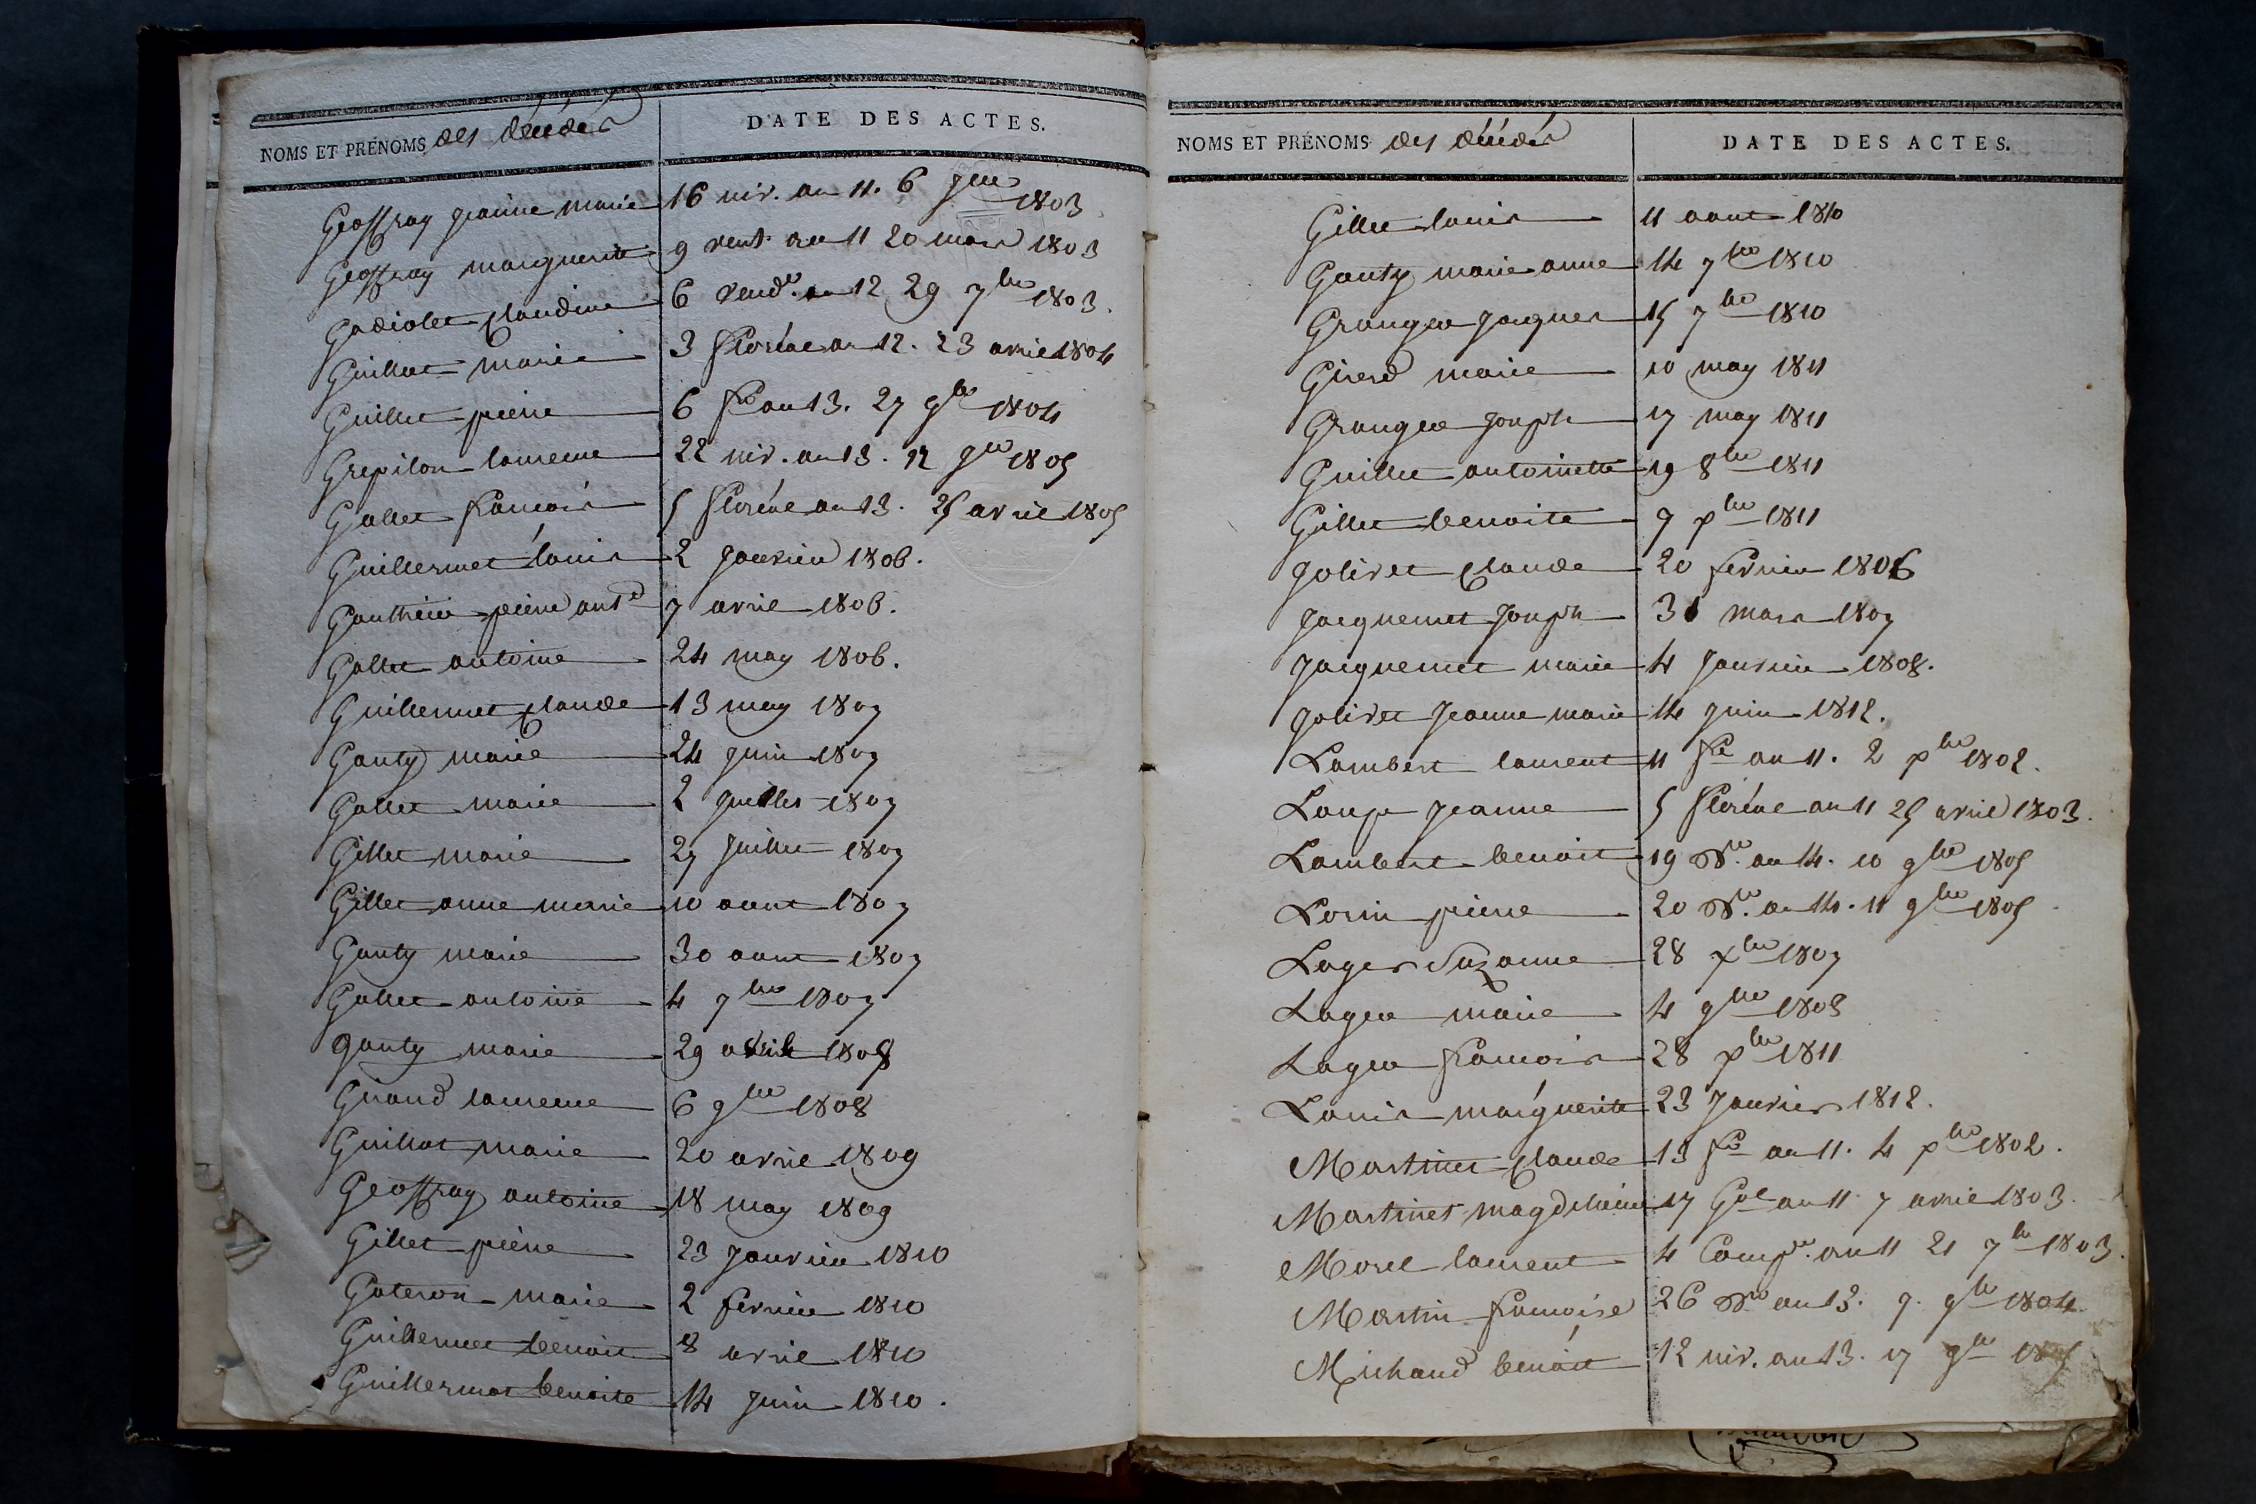 NOMS ET PRÉNOMS des décédés
DATE DES ACTES.
Geoffray jeanne marie 16 niv. an 11. 6 jer 1803
Geoffray marguerite 9 vent. an 11 20 mars 1803
Gadiolet claudine 6 vend.re an 12 29 7bre 1803.
Guillot marie 3 floréal an 12. 23 avril 1804
Guillet pierre 6 fre an 13. 27 9bre 1804
Grepilon laurence 22 niv. an 13. 12 jer 1805
Gallet francois 5 floréal an 13. 25 avril 1805
Guillermet louis 2 janvier 1806.
Gauthier pierre ant.e 7 avril 1806.
Gallet antoine 24 may 1806.
Guillermet claude 13 may 1807
Ganty marie 24 juin 1807
Gallet marie 2 juillet 1807
Gillet marie 27 juillet 1807
Gillet anne marie 10 aout 1807
Ganty marie 30 aout 1807
Gallet antoine 4 7bre 1807
Ganty marie 29 avril 1808
Giraud laurence 6 9bre 1808
Guillot marie 20 avril 1809
Geoffray antoine 18 may 1809
Gillet pierre 23 janvier 1810
Gateron marie 2 fevrier 1810
Guillermet benoit 8 avril 1810
Guillermet benoite 14 juin 1810.
NOMS ET PRÉNOMS des décédés
DATE DES ACTES.
Gillet louis 11 aout 1810
Ganty marie anne 14 7bre 1810
Granger jacques 15 7bre 1810
Girerd marie 10 may 1811
Granger joseph 17 may 1811
Guillet antoinette 19 8bre 1811
Gillet benoite 9 xbre 1811
jolivet claude 20 fevrier 1806
jacquemet joseph 31 mars 1807
jacquemet marie 4 janvier 1808.
jolivet jeanne marie 14 juin 1812.
Lambert laurent 11 fre an 11. 2 xbre 1802.
Loup jeanne 5 floréal an 11 25 avril 1803.
Lambert benoit 19 Bre. an 14. 10 9bre 1805
Lorin pierre 20 Bre. an 14. 11 9bre 1805
Lager Suzanne 28 xbre 1807
Lager marie 4 9bre 1808
Lager francois 28 xbre 1811
Louis marguerite 23 janvier 1812.
Martinet claude 13 fre an 11. 4 xbre 1802.
Martinet magdelaine 17 Gal an 11 7 avril 1803.
Morel laurent 4 Compre. an 11 21 7bre 1803.
Martin francoise 26 Bre an 13. 9bre 1804.
Michaud benoit 12 niv. an 13.